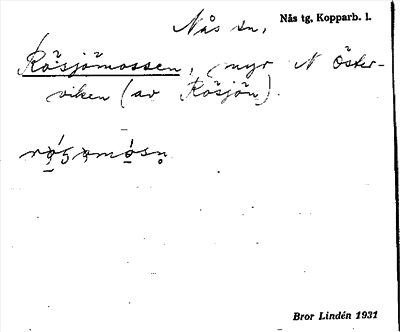 Nås sn, Nås tg, Kopparb. l.
Rösjömossen, myr N Öster-
viken (av Rösjön).
Bror Lindén 1931